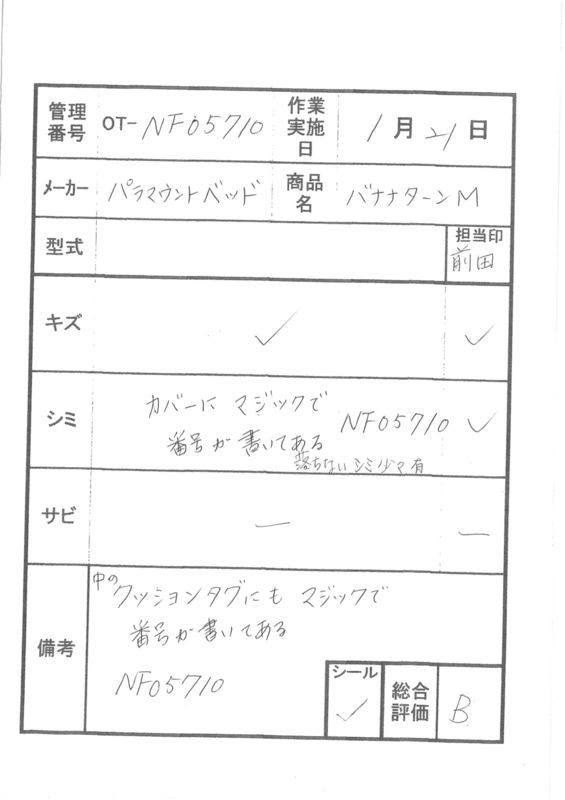 管理番号 OT- NF05710 作業実施日 1月21日
メーカー パラマウントベッド 商品名 バナナターンM
型式 担当印
前田
キズ ✓ ✓
シミ カバーに マジックで
番号が書いてある NF05710 ✓
落ちない シミ少々有
サビ — —
備考 中のクッションタグにも マジックで
番号が書いてある
NF05710
シール ✓ 総合評価 B